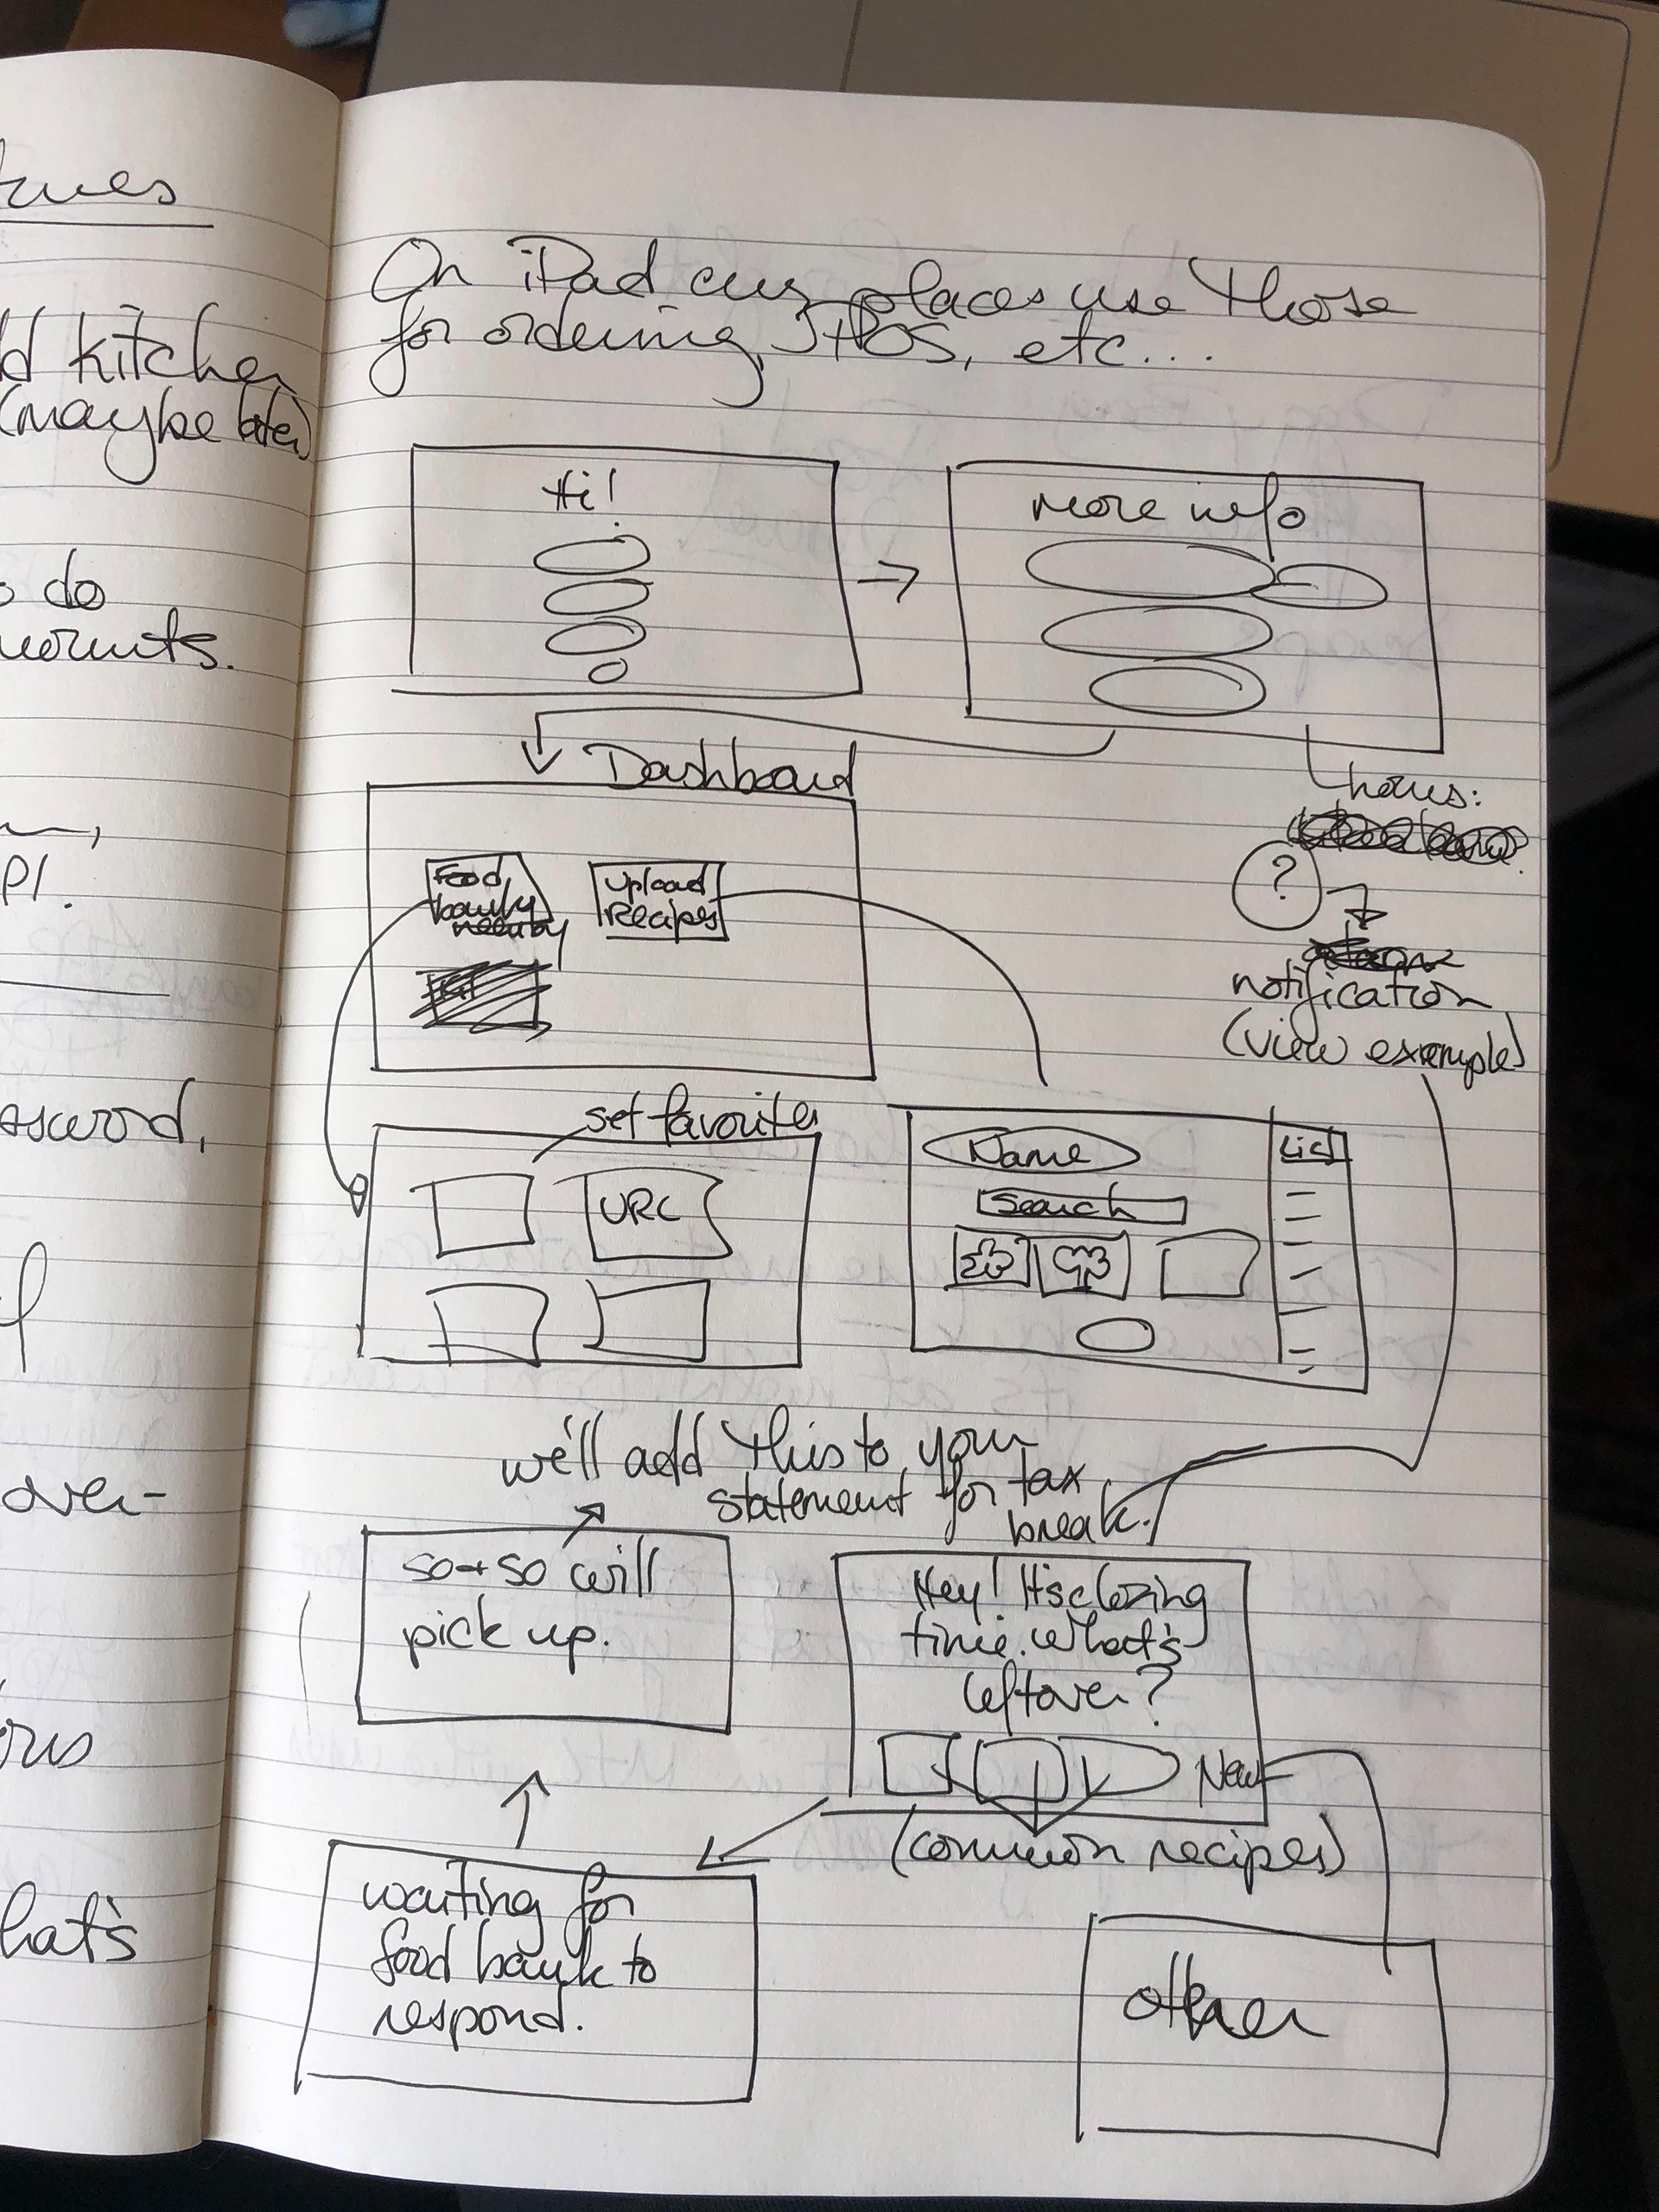 kitchen
(maybe later)
do
hat's
On iPad cuz places use those
for ordering, POS, etc...
Hi!
more info
Dashboard
hours:
Food
bank
nearby
Upload
Recipes
?
notification
(view example)
set favorites
URL
Name
Search
List
we'll add this to your
statement for tax
break.
so + so will
pick up.
Hey! It's closing
time. What's
leftover?
New
(common recipes)
waiting for
food bank to
respond.
other